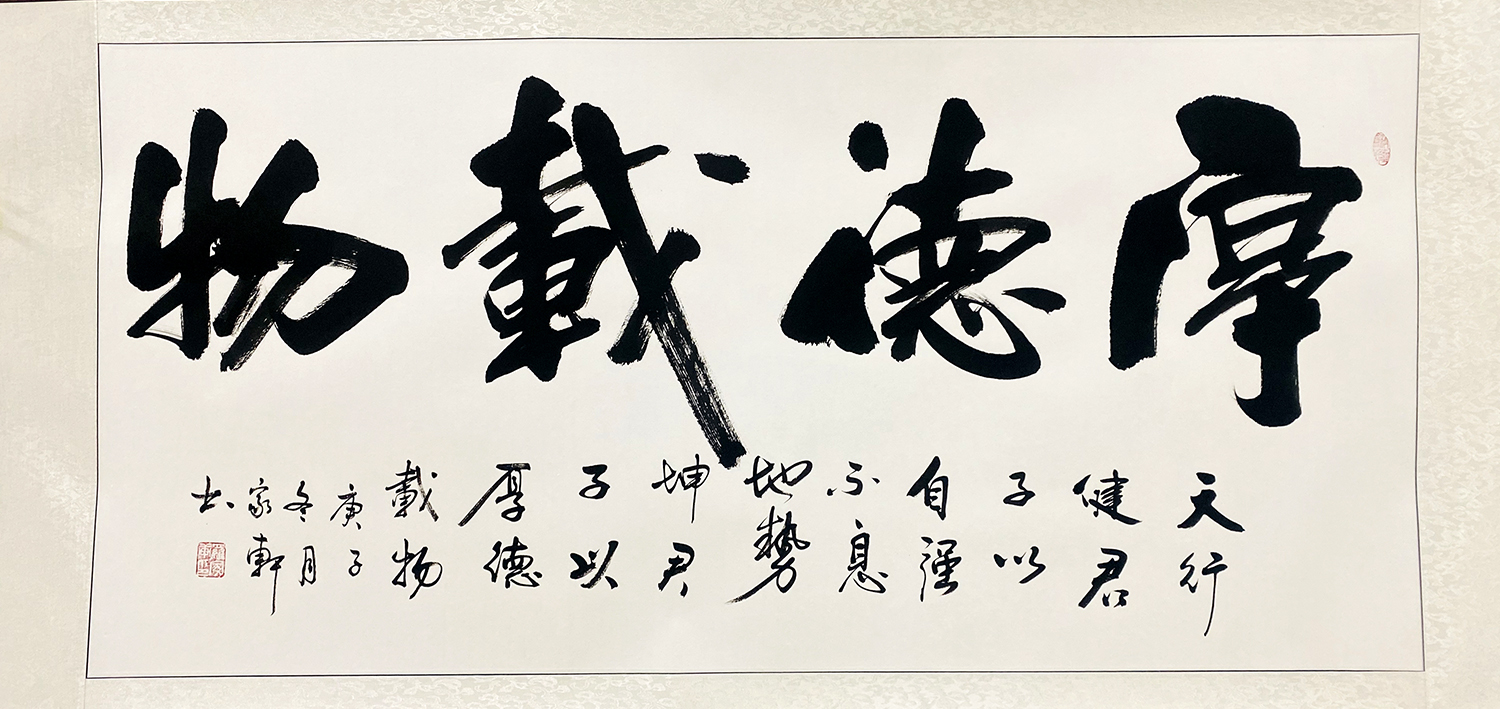 厚德載物
天行
健君
子以
自强
不息
地勢
坤君
子以
厚德
載物
庚子
冬月
家軒
书